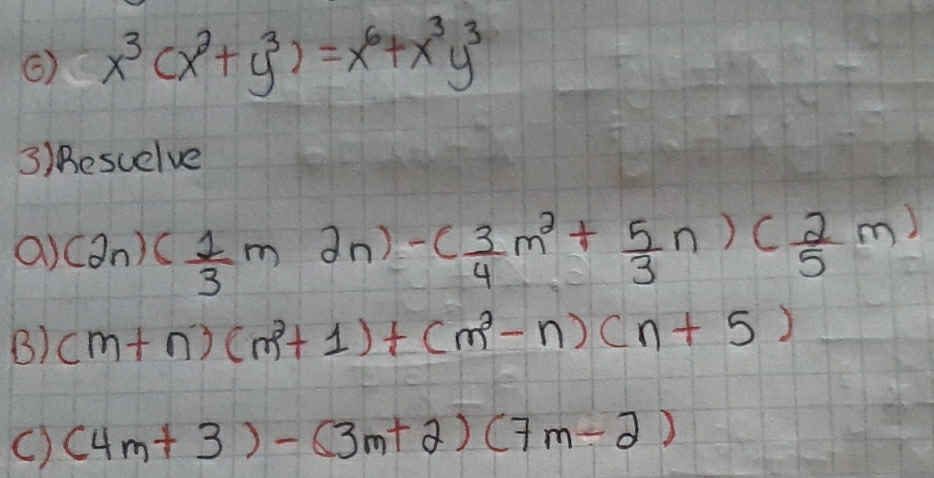 6) x³ (x² + y³) = x⁶ + x³ y³
3) Resuelve
a) (2n) (1/3 m 2n) - (3/4 m² + 5/3 n) (2/5 m)
B) (m + n) (m² + 1) + (m² - n) (n + 5)
C) (4m + 3) - (3m + 2) (7m - 2)